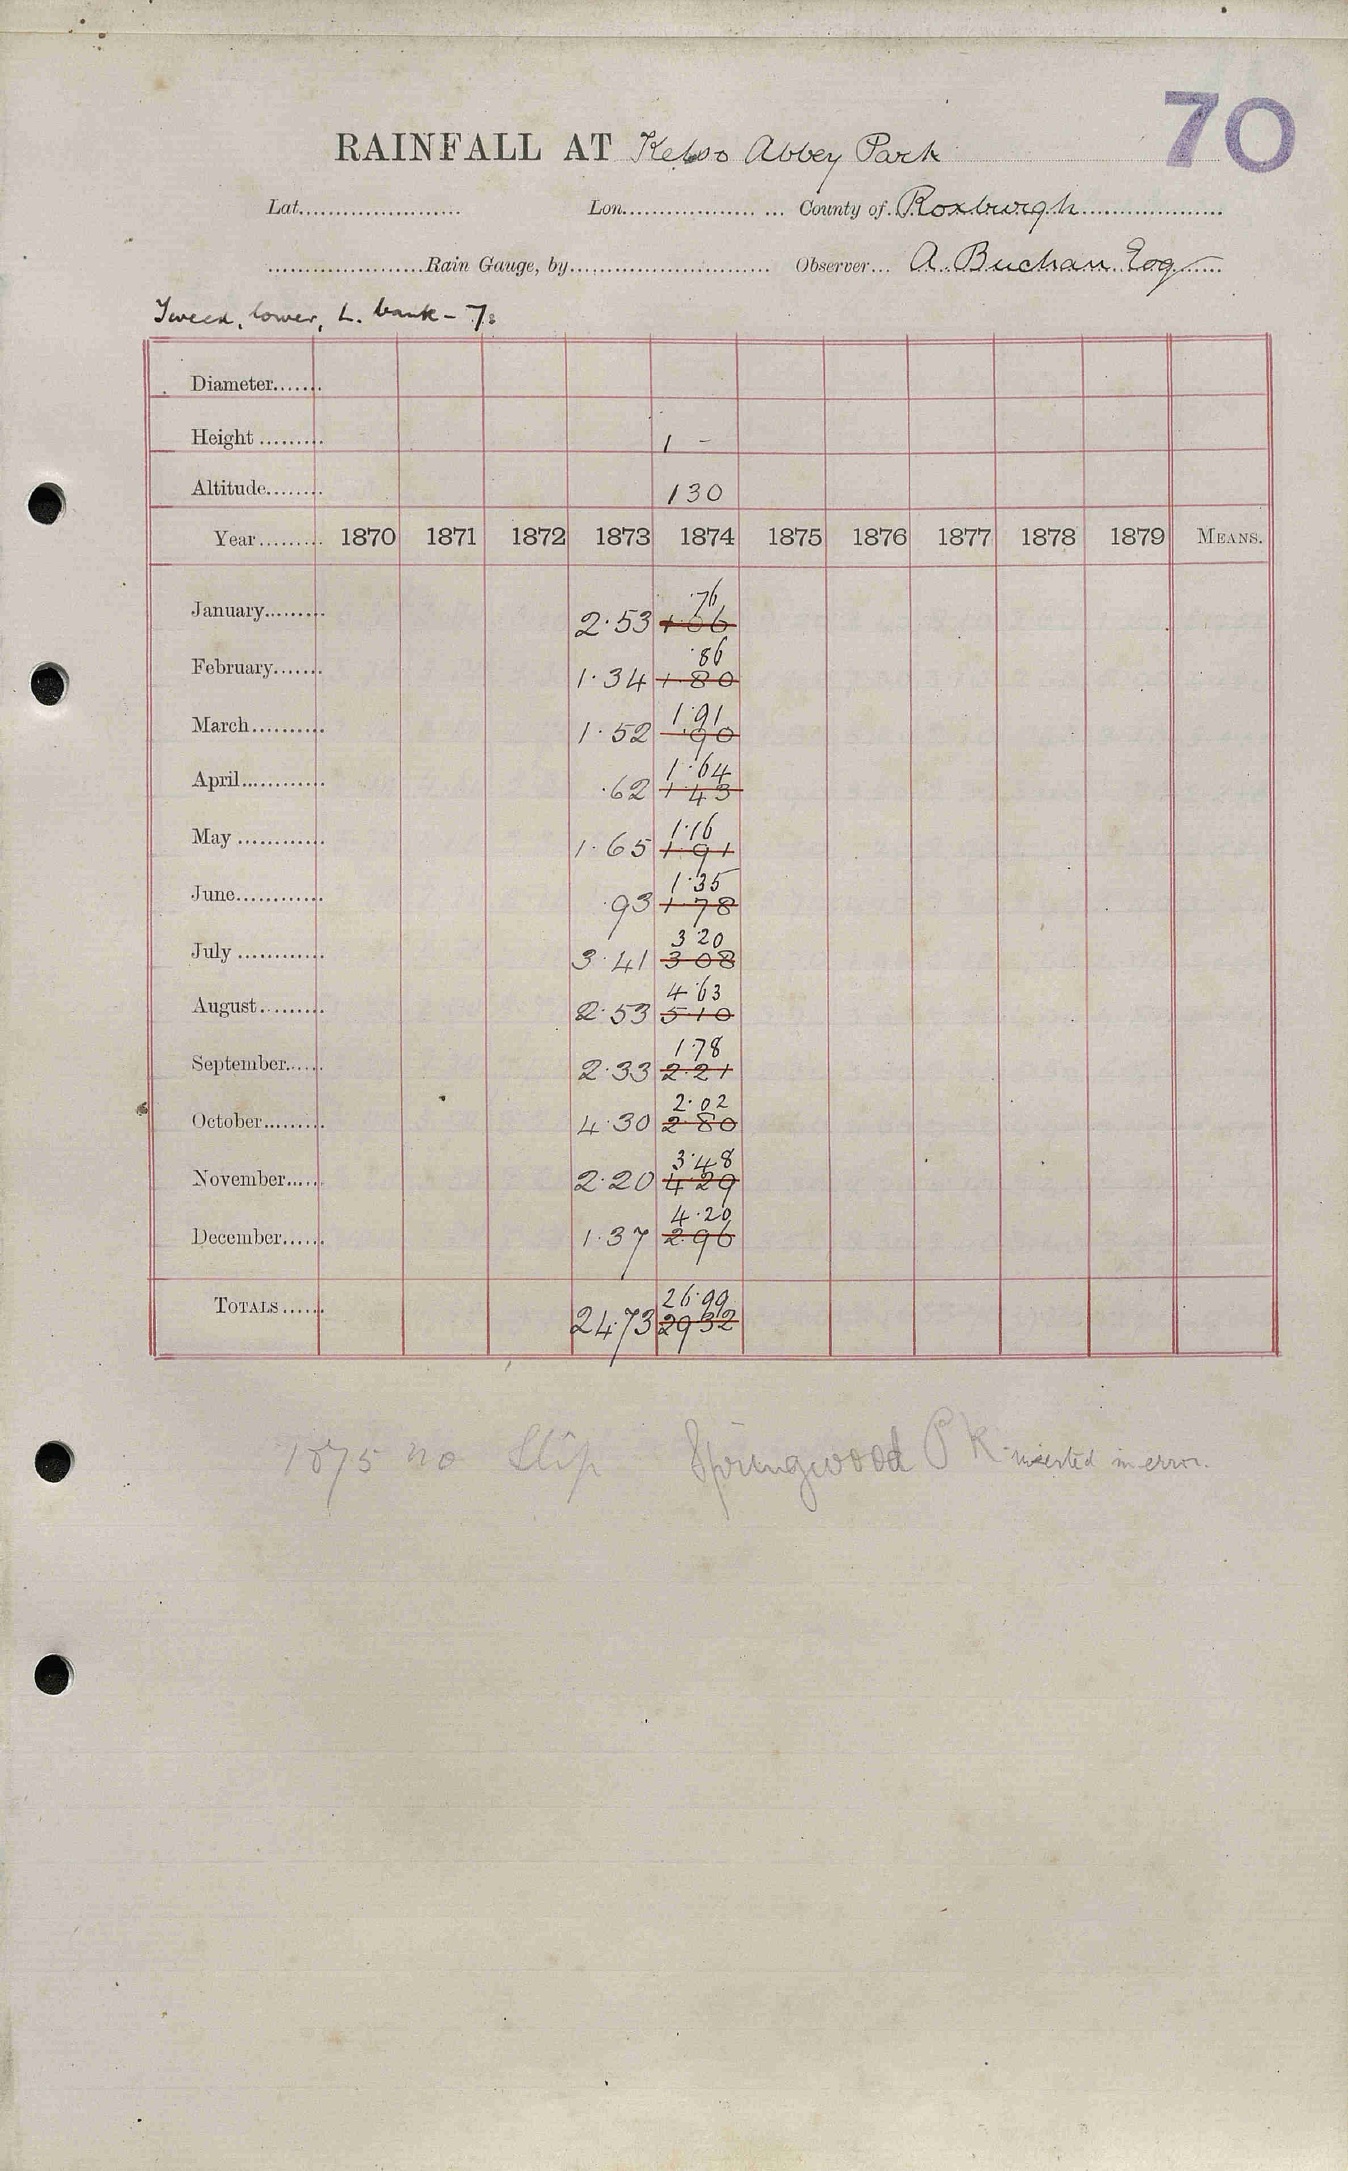 70
RAINFALL AT Kelso Abbey Park
Lat...................... Lon.................. ... County of Roxburgh
......................Rain Gauge, by........................... Observer... A. Buchan Esq
Tweed, lower, L. bank - 7.
Diameter.......
Height ......... 1 -
Altitude........ 130
Year......... 1870 1871 1872 1873 1874 1875 1876 1877 1878 1879 MEANS.
·76
January......... 2·53 1·06
·86
February....... 1·34 1 80
1·91
March.......... 1·52 ·90
1·64
April............ ·62 1 43
1·16
May ............ 1·65 1 91
1·35
June............ ·93 1 78
3 20
July ............ 3·41 3 08
4·63
August......... 2·53 5 10
1·78
September...... 2·33 2·21
2·02
October......... 4·30 2 80
3·48
November...... 2·20 4 29
4·20
December...... 1·37 2·96
26·99
TOTALS...... 24·73 29 32
1875 no Slip Springwood Pk inserted in error.